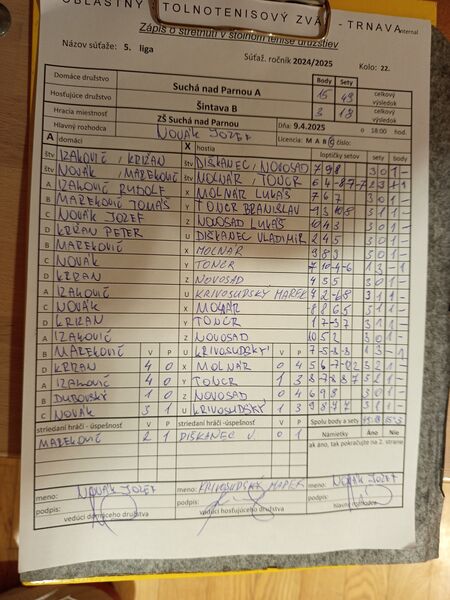 OBLASTNÝ STOLNOTENISOVÝ ZVÄZ - TRNAVA
Internal
Zápis o stretnutí v stolnom tenise družstiev
Názov súťaže: 5. liga Súťaž. ročník 2024/2025 Kolo: 22.
Body Sety
Domáce družstvo Suchá nad Parnou A 15 49 celkový výsledok
Hosťujúce družstvo Šintava B 3 18 celkový výsledok
Hracia miestnosť ZŠ Suchá nad Parnou Dňa: 9.4.2025 o 18:00 hod.
Hlavný rozhodca NOVÁK JOZEF Licencia: M A B C číslo:
A domáci X hostia loptičky setov sety body
štv IZAKOVIČ / KRIŽAN štv DIŠKANEC / NOVOSAD 7 9 8 3 0 1 -
štv NOVÁK / MAREKOVIČ štv MOLNÁR / TONCR
A IZAKOVIČ RUDOLF X MOLNÁR LUKÁŠ 7 6 7 3 0 1 -
B MAREKOVIČ TOMÁŠ Y TONCR BRANISLAV 3 1 1 -
C NOVÁK JOZEF Z NOVOSAD LUKÁŠ 10 4 3 3 0 1 -
D KRIŽAN PETER U DIŠKANEC VLADIMÍR 2 4 5 3 0 1 -
B MAREKOVIČ X MOLNÁR 9 8 3 3 0 1 -
C NOVÁK Y TONCR 1 3 - 1
D KRIŽAN Z NOVOSAD 4 5 5 3 0 1 -
A IZAKOVIČ U KRIVOSUDSKÝ MAREK 3 1 1 -
C NOVÁK X MOLNÁR 3 1 1 -
D KRIŽAN Y TONCR 3 1 1 -
A IZAKOVIČ Z NOVOSAD 3 0 1 -
B MAREKOVIČ V P U KRIVOSUDSKÝ V P 1 3 - 1
D KRIŽAN 4 0 X MOLNÁR 0 4 3 2 1 -
A IZAKOVIČ 4 0 Y TONCR 1 3 3 2 1 -
B DUBOVSKÝ 1 0 Z NOVOSAD 0 4 6 9 8 3 0 1 -
C NOVÁK 3 1 U KRIVOSUDSKÝ 1 3 3 1 1 -
striedaní hráči - úspešnosť V P striedaní hráči - úspešnosť V P Spolu body a sety
MAREKOVIČ 2 1 DIŠKANEC V 0 1 Námietky Áno Nie
ak áno, tak pokračujte na 2. strane
meno: NOVÁK JOZEF meno: KRIVOSUDSKÝ MAREK meno: NOVÁK JOZEF
podpis: podpis: podpis:
vedúci domáceho družstva vedúci hosťujúceho družstva hlavný rozhodca